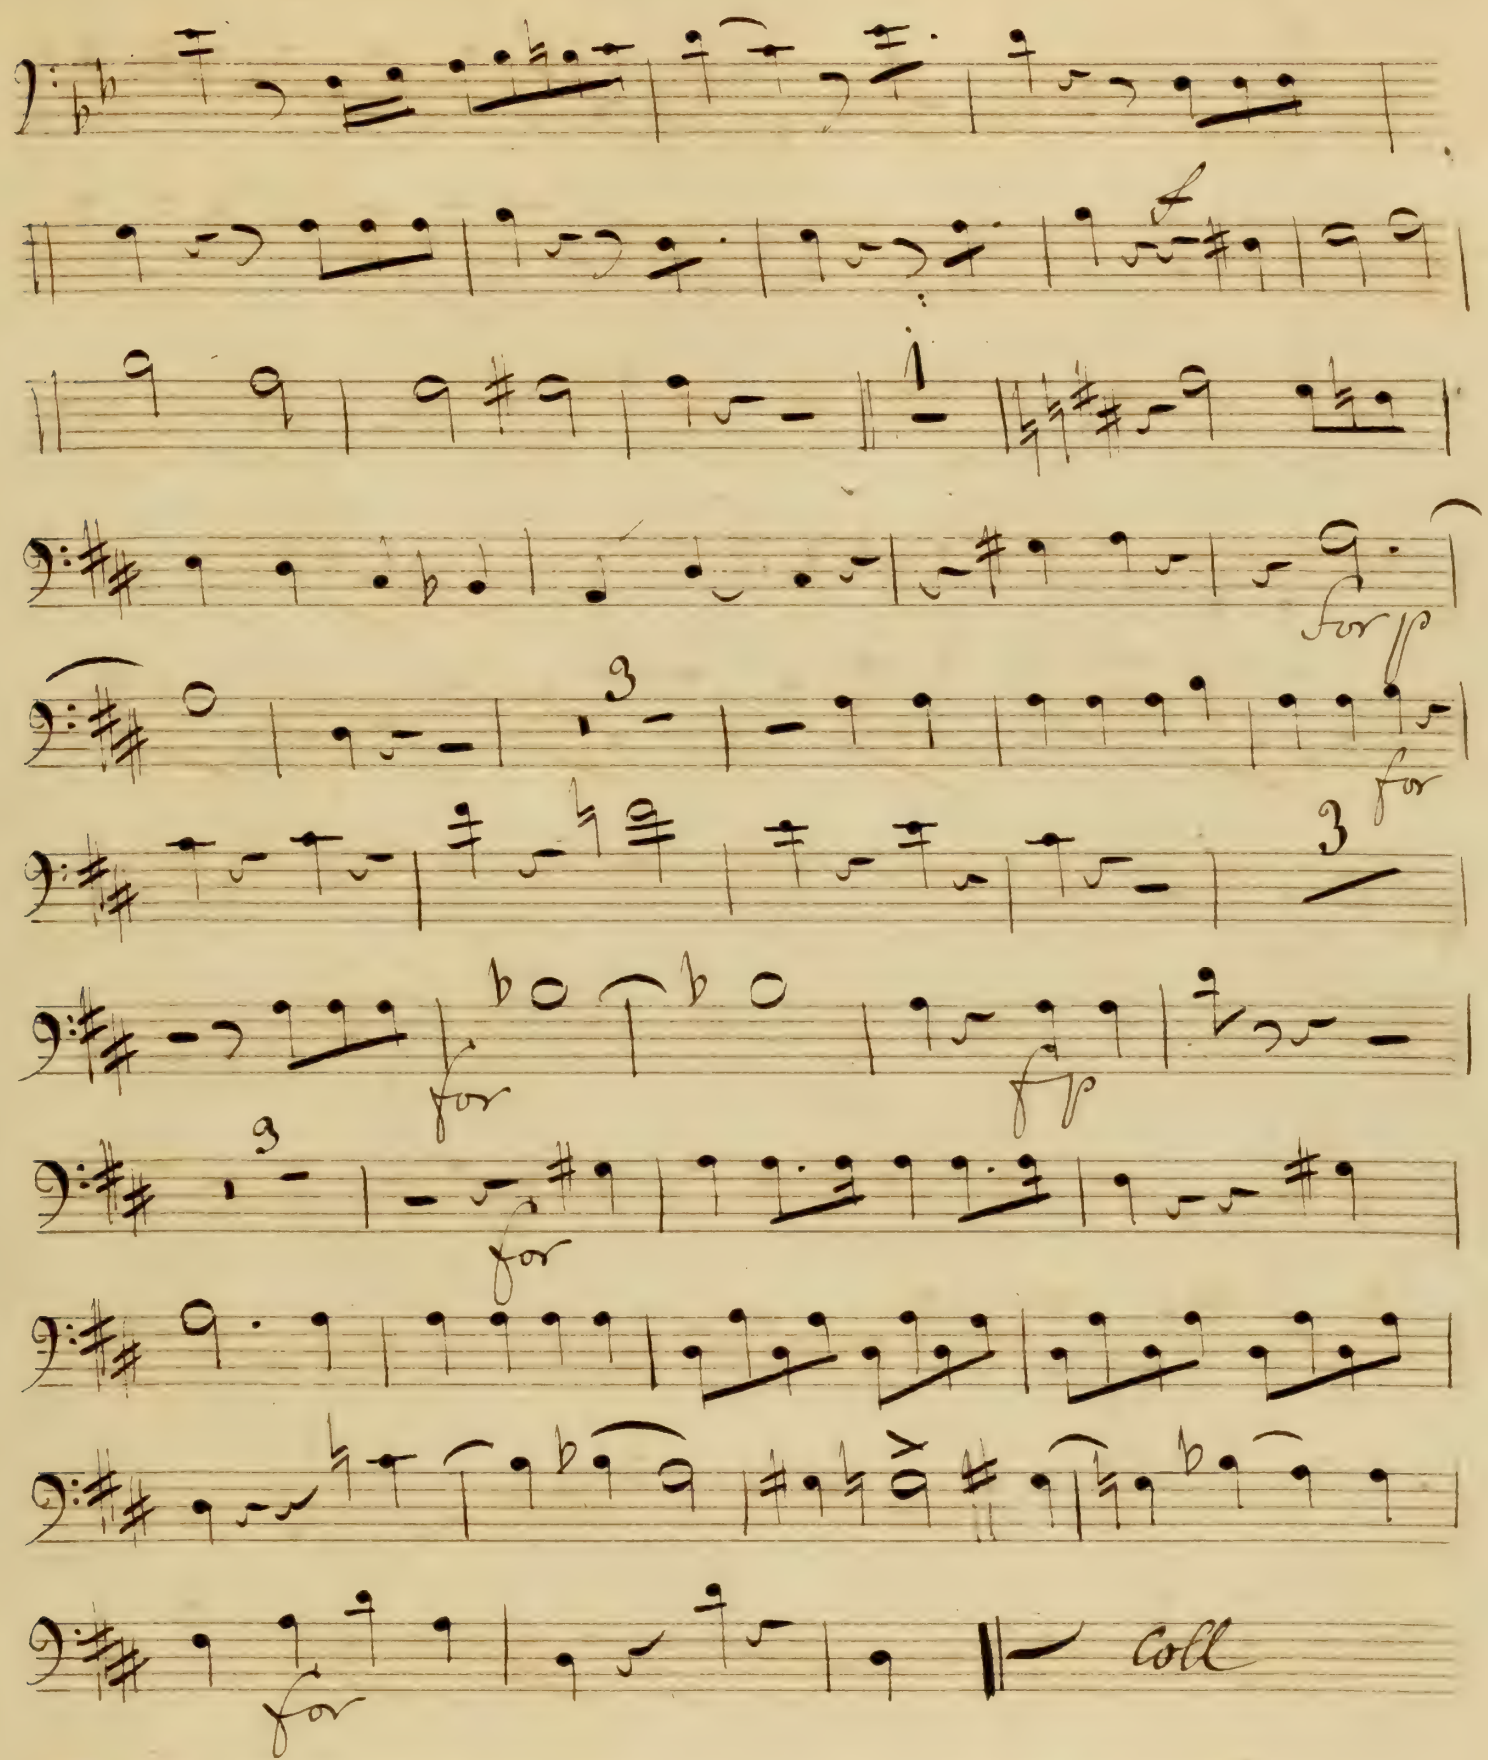 f
1
for p
3
for
3
for fp
3
for
for
coll